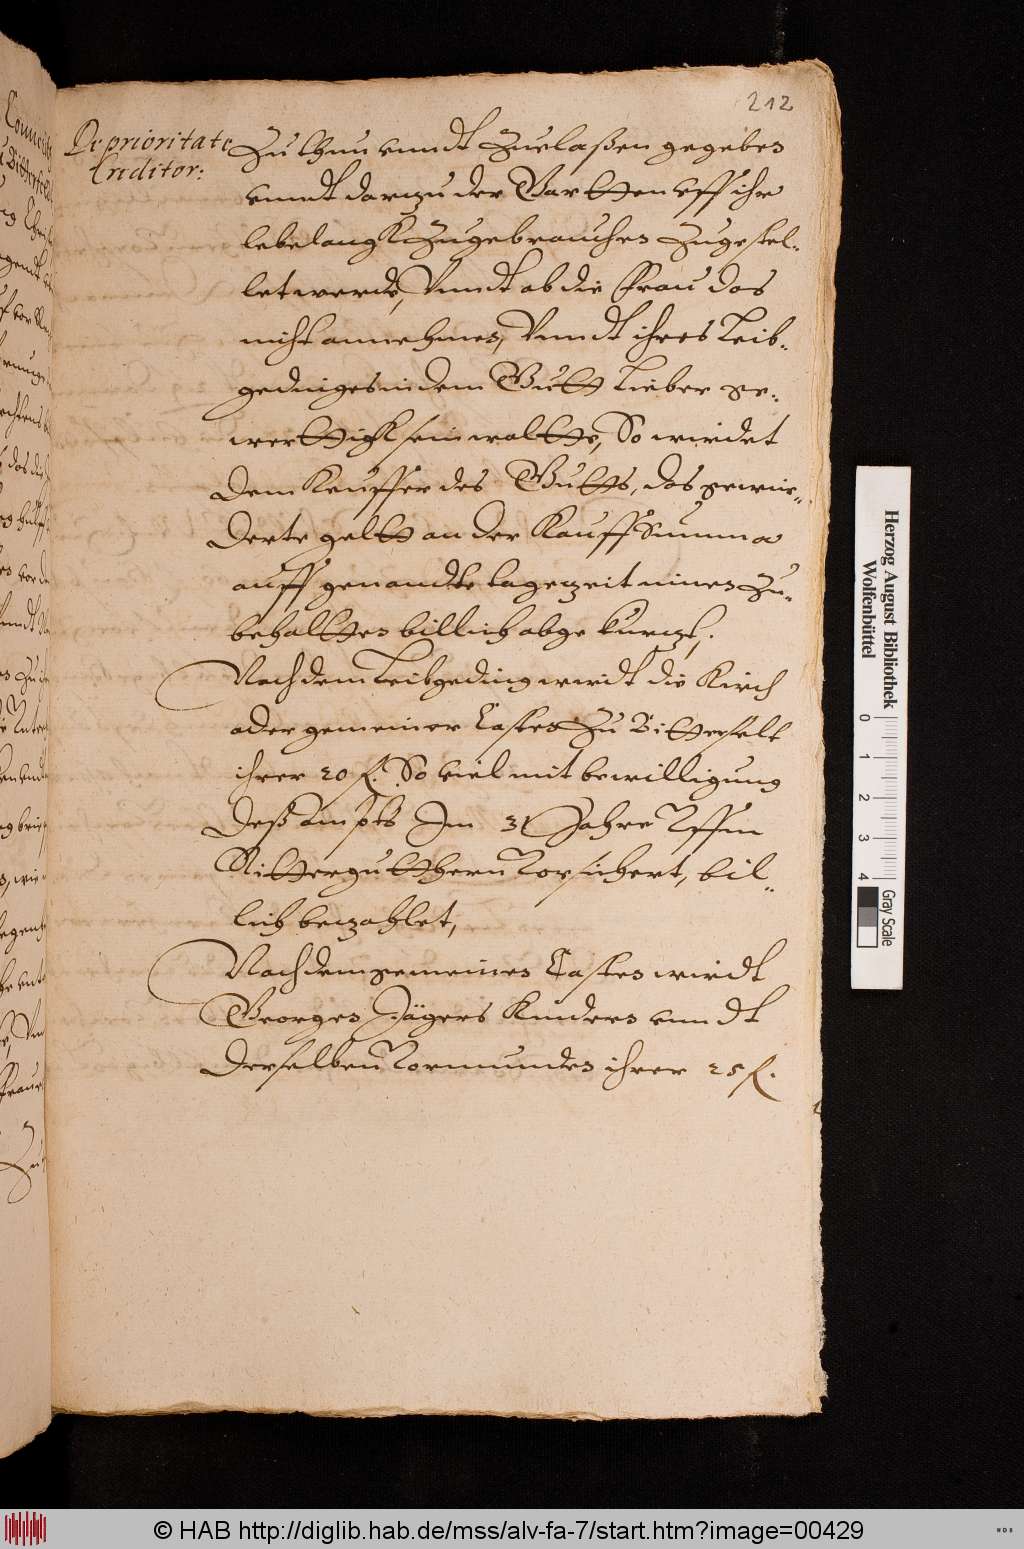 212
De prioritate
Creditor:
Zu thun unndt Zuelaßen gegeben
unndt darzu der Gartten uff ihr
lebelangk Zugebrauchen Zugestel-
let werde, Unndt ob die Frau das
nicht annehmen, Unndt ihres Leib-
gedinges in dem Gutt Lieber ge-
werttigk sein woltte, So wirdet
Dem Keuffer des Gutts, das gewie-
derte geltt an der Kauff Summa
auff genandte tagezeit innen Zu-
behaltten billich abgekurzt,
Nach dem Leibgeding wirdt die Kirch
oder gemeiner Casten Zu Bitterfelt
ihrer 20 f. So viel mit bewilligung
Deß ampts Im 31 Jahre Uffm
Rittergutt hern Vorsichert, bil-
lich bezahlet,
Nach dem gemeinen Casten wirdt
Georgen Jägers Kindern unndt
Derselben Vormunden ihrer 25 f.
Herzog August Bibliothek
Wolfenbüttel
0 1 2 3 4
Gray Scale
© HAB http://diglib.hab.de/mss/alv-fa-7/start.htm?image=00429